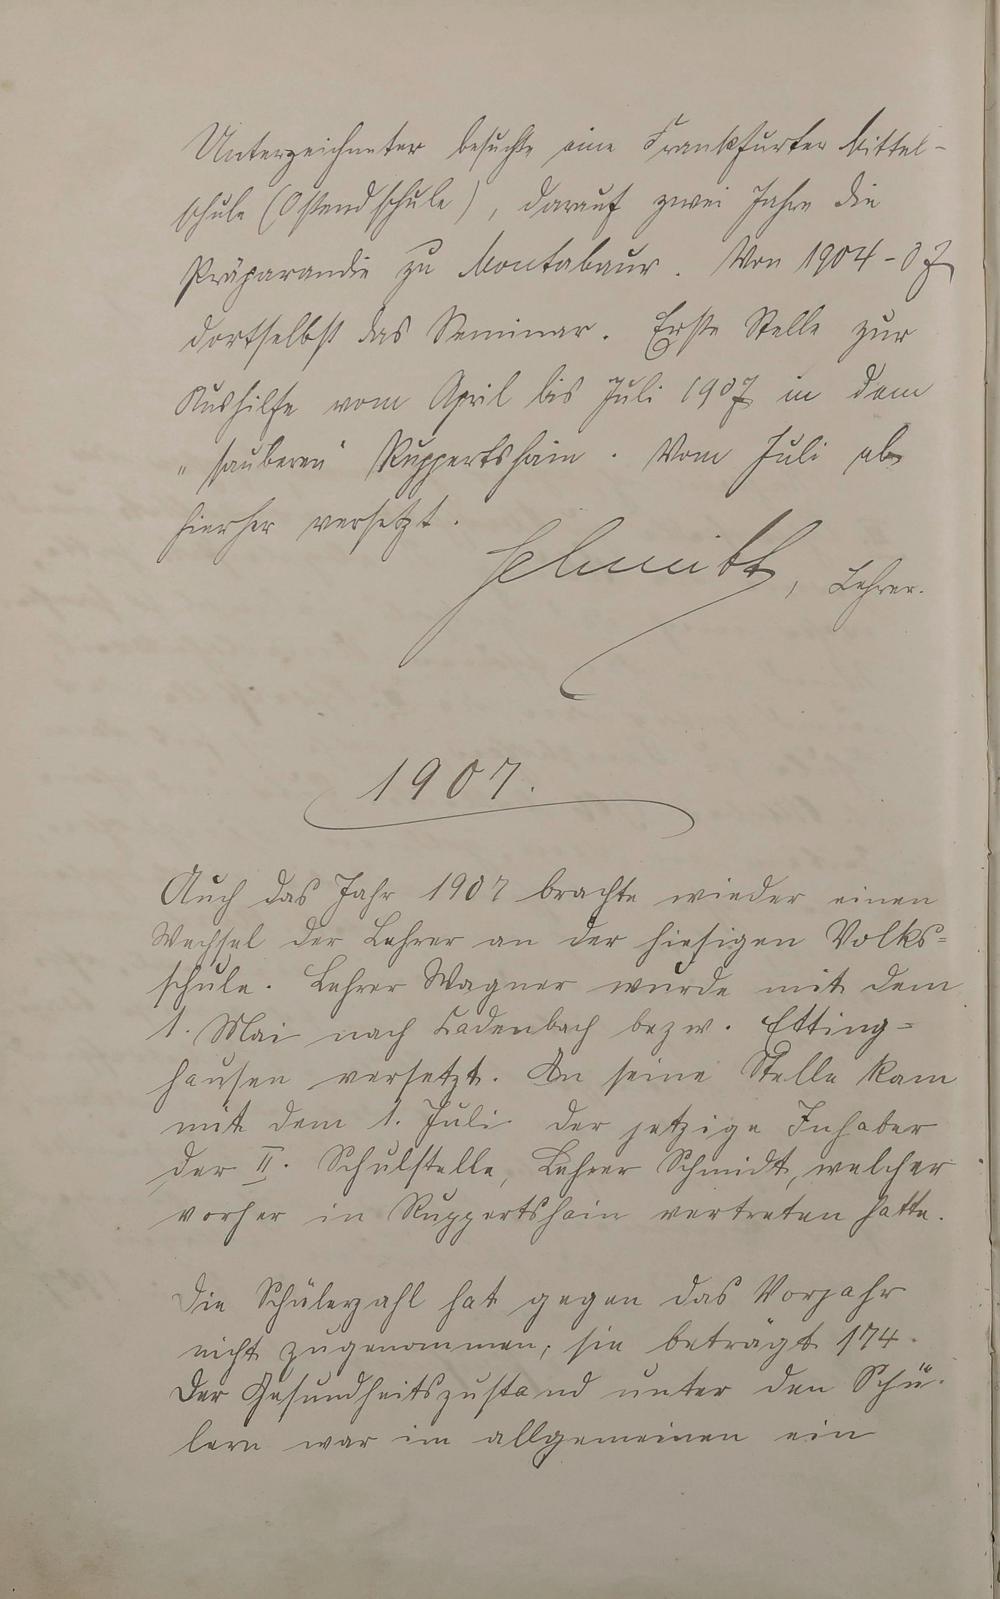 Unterzeichneter besuchte eine Frankfurter Mittel-
schule (Ostendschule), darauf zwei Jahre die
Präparandie zu Montabaur. Von 1904-07
dortselbst das Seminar. Erste Stelle zur
Aushilfe vom April bis Juli 1907 in dem
„sauberen“ Ruppertshain. Vom Juli ab
hierher versetzt.
Schmitt, Lehrer.
1907.
Auch das Jahr 1907 brachte wieder einen
Wechsel der Lehrer an der hiesigen Volks=
schule. Lehrer Wagner wurde mit dem
1. Mai nach Cadenbach bezw. Etting=
hausen versetzt. An seine Stelle kam
mit dem 1. Juli der jetzige Inhaber
der II. Schulstelle, Lehrer Schmidt, welcher
vorher in Ruppertshain vertreten hatte.
Die Schülerzahl hat gegen das Vorjahr
nicht zugenommen; sie beträgt 174.
Der Gesundheitszustand unter den Schü-
lern war im allgemeinen ein